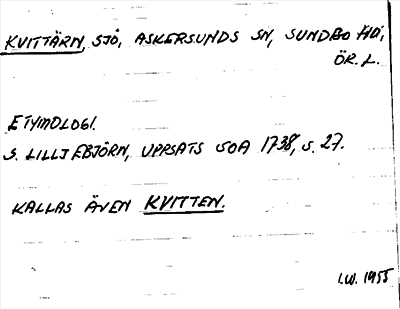 KVITTÄRN, SJÖ, ASKERSUNDS SN, SUNDBO HD,
ÖR. L.
ETYMOLOGI.
S. LILLJEBJÖRN, UPPSATS SOA 1738, S. 27.
KALLAS ÄVEN KVITTEN.
I.W. 1955